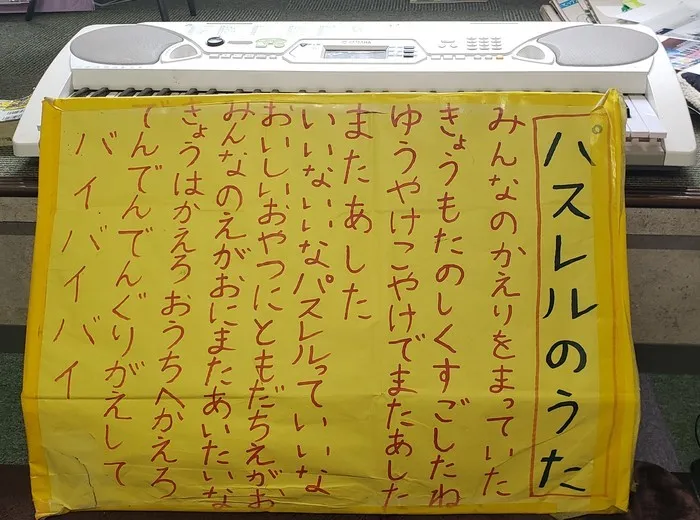 パスレルのうた
みんなのかえりをまっていた
きょうもたのしくすごしたね
ゆうやけこやけでまたあした
またあした
いいないいなパスレルっていいな
おいしいおやつにともだちえがお
みんなのえがおにまたあいたいな
きょうはかえろおうちへかえろ
でんでんでんぐりがえして
バイバイバイ